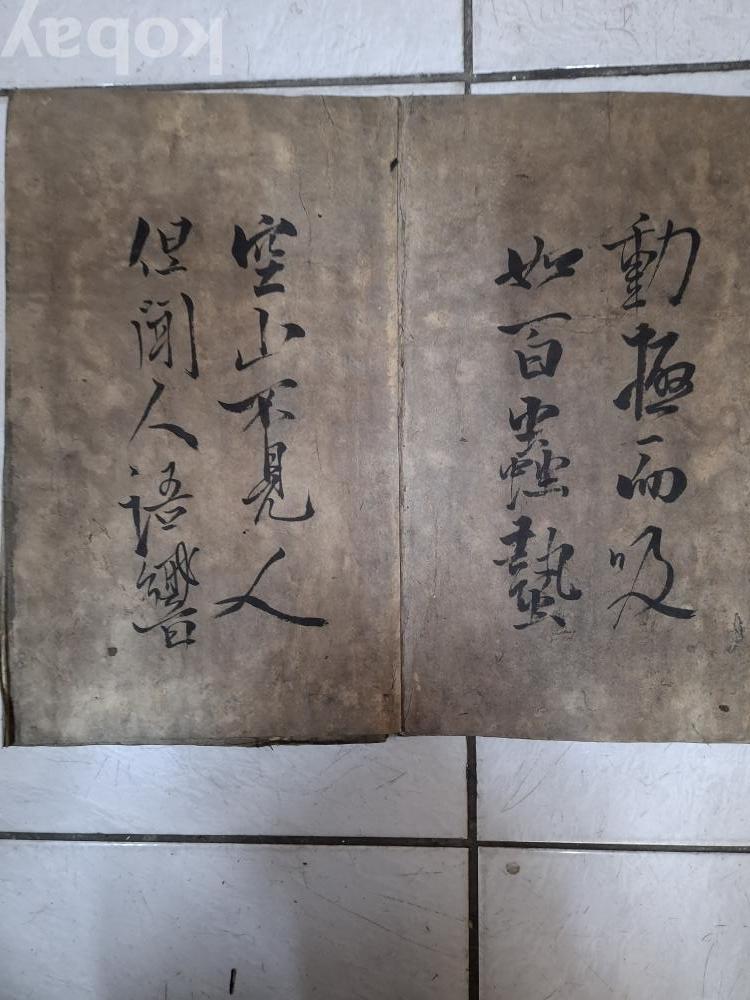 動極而吸
如百蟲蟄
空山不見人
但聞人語響
kobay